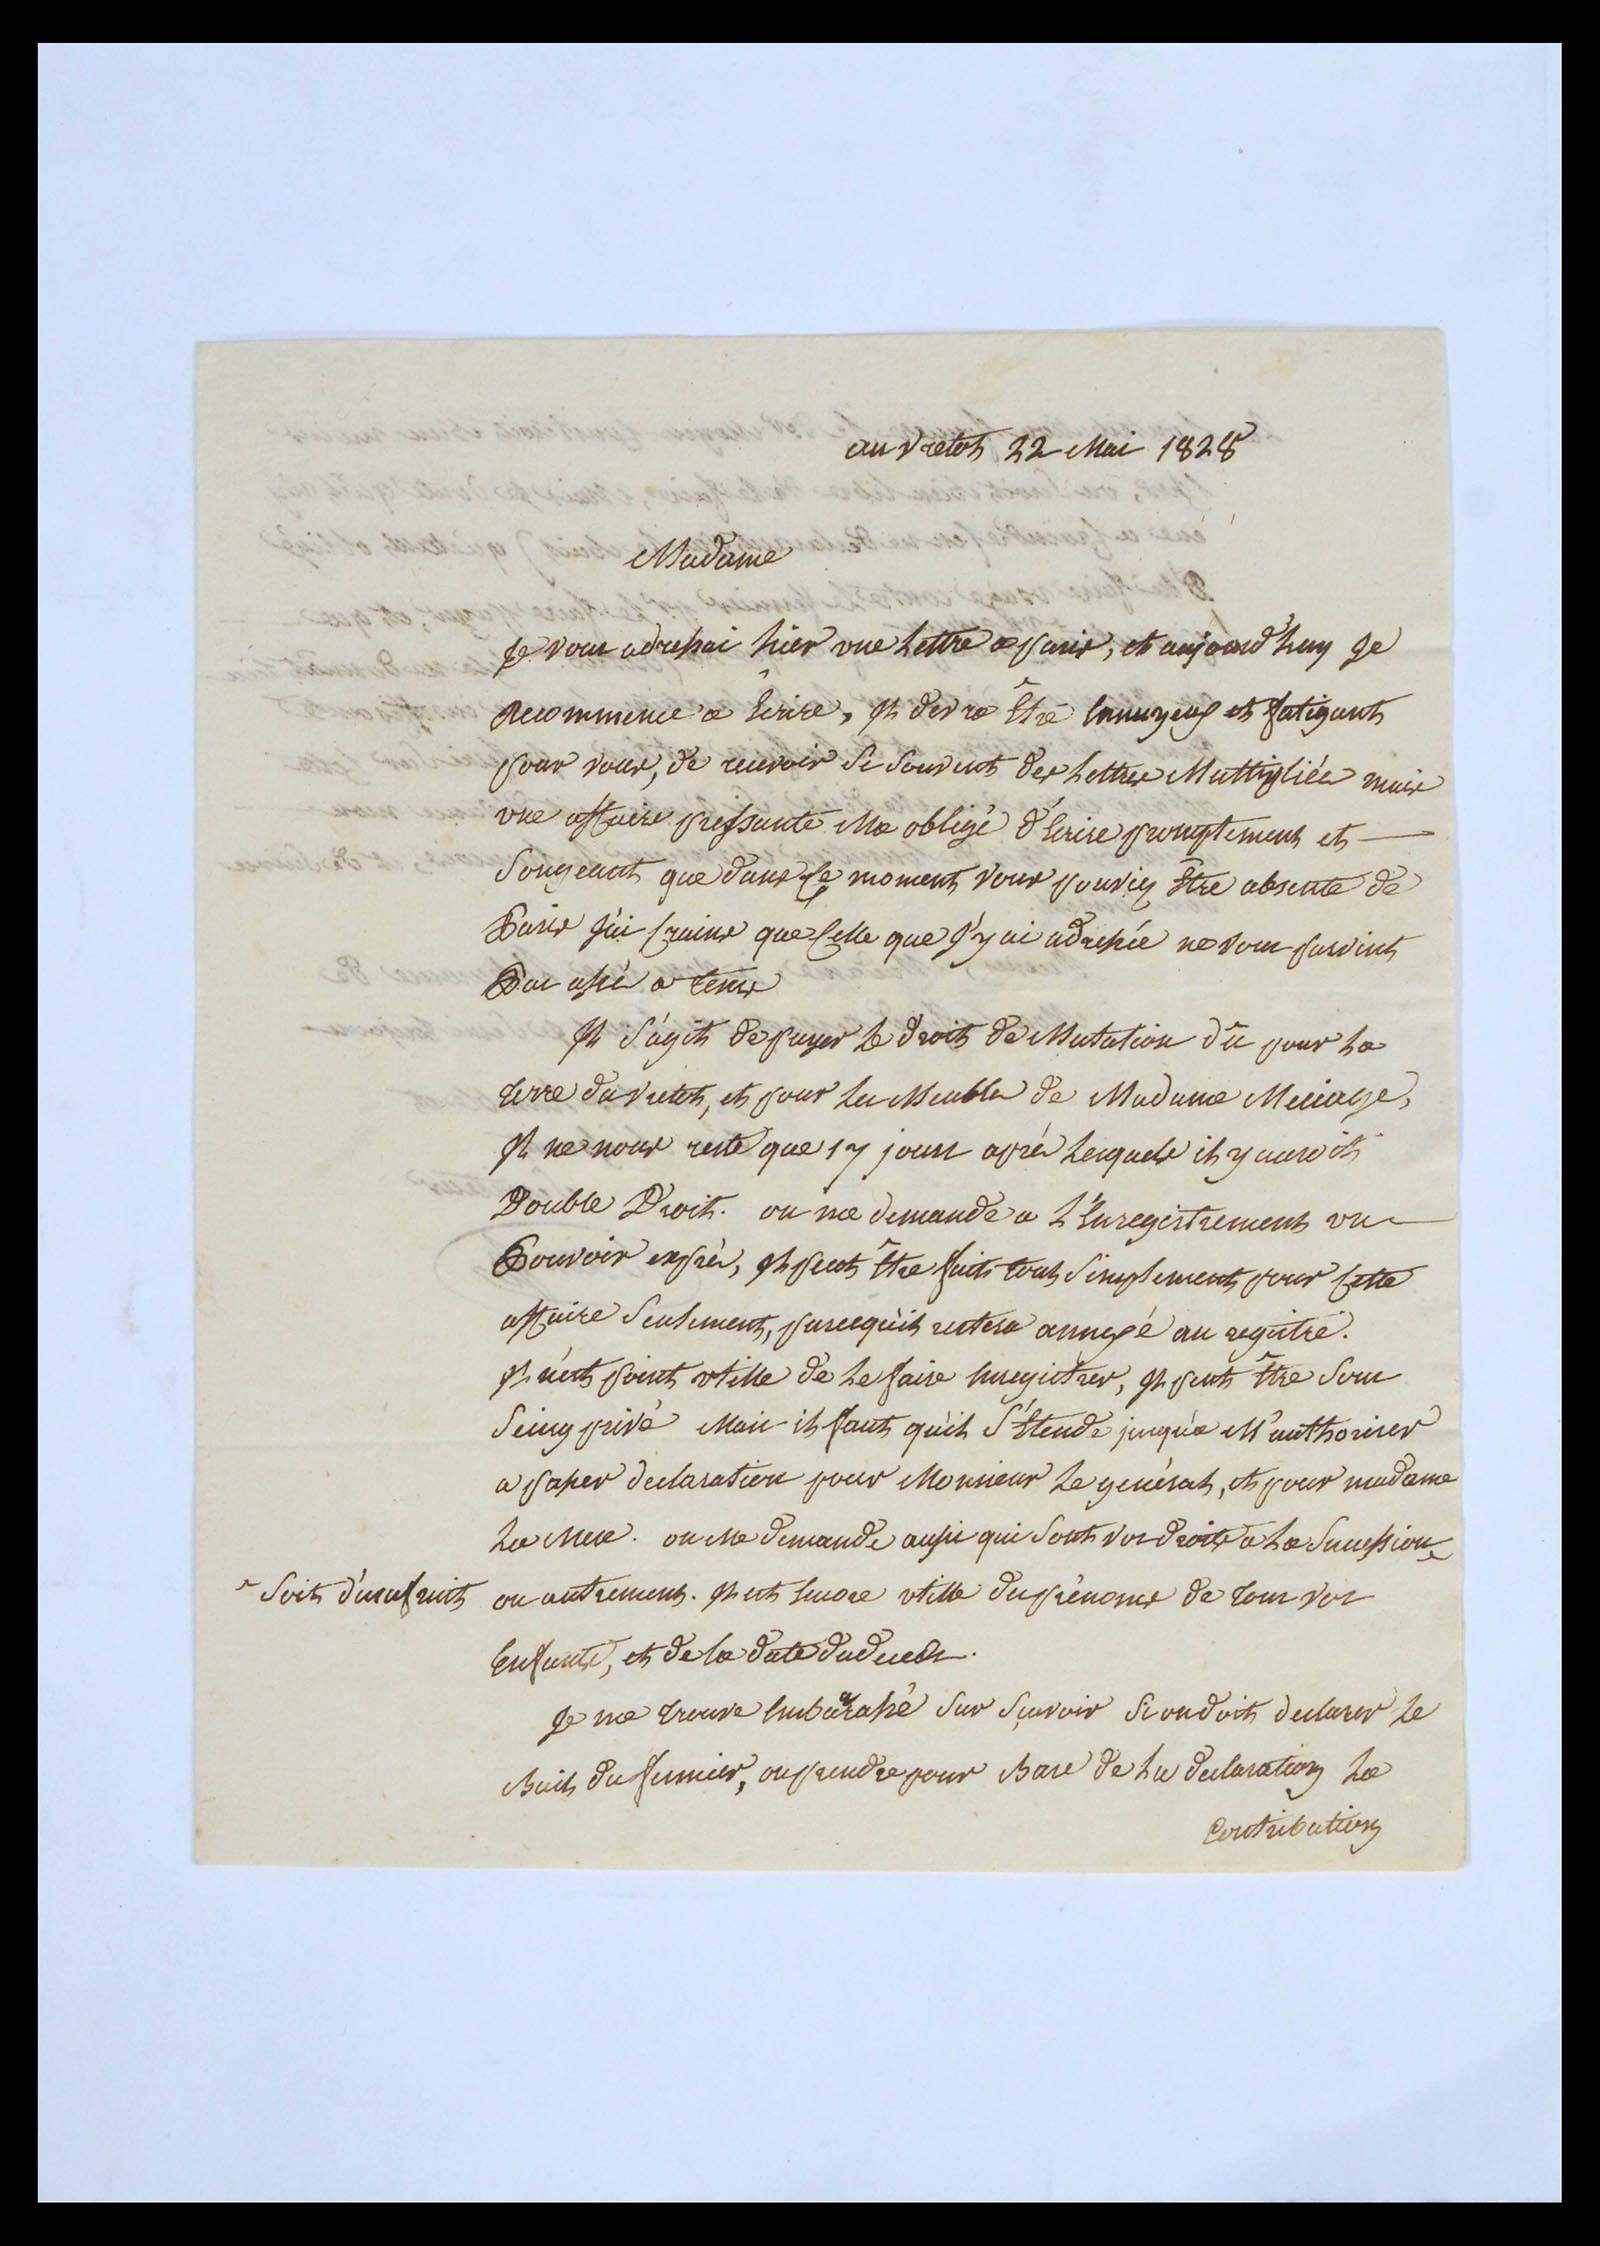 au vretot 22 Mai 1828
Madame
Je vous adressai hier une Lettre a paris, et aujourd'huy Je
Recommence a Ecrire, Il devra Être Ennuyeux et fatigant
pour vous, de recevoir si souvent des Lettres Multipliées mais
une affaire pressante Ma obligé d'Ecrire promptement et
Songeant que dans Ce moment vous pouviez Être absente de
Paris J'ai Crains que Celle que J'y ai adressée ne vous parvint
Pas assé a tems
Il s'agit de payer Le droit de Mutation dû pour La
terre du vretot, et pour Les Meubles de Madame Meriage,
Il ne nous reste que 17 jours après Lesquels il y auroit
Double Droit. on me demande a L'Enregistrement un
Pouvoir exprès, Il peut Être fait tout simplement pour Cette
affaire seulement, parcequ'il restera annexé au registre.
Il n'est point utille de Le faire Enregistrer, Il peut Être sous
seing privé Mais il faut qu'il s'Etende jusqu'a M'authoriser
a passer declaration pour Monsieur Le général, et pour madame
La Mere. on Me demande aussi qui sont vos droits a La Sucession
soit d'usufruit ou autrement. Il est Encore utille des prénoms de tous vos
Enfants, et de la date du decès.
Je me trouve Embarassé sur sçavoir si on doit declarer Le
Bail du fermier, ou prendre pour Base de La declaration La
Contribution